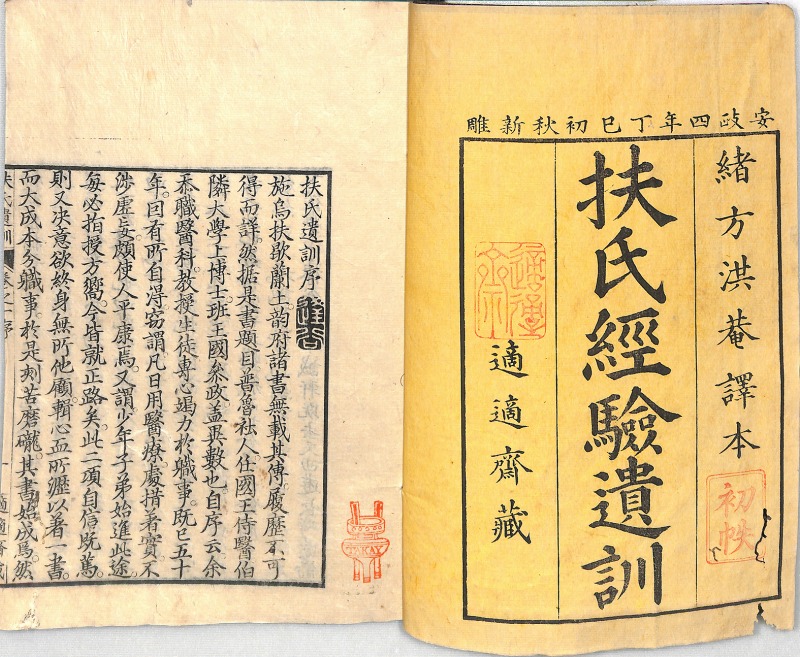 安政四年丁巳初秋新雕
緒方洪菴譯本
初帙
扶氏經驗遺訓
適適齋藏
扶氏遺訓序
施烏扶歇蘭土韵府諸書無載其傳。履歷不可
得而詳。然据是書題目普魯社人任國王侍醫伯
隣大學上博士班王國參政盖異數也自序云余
忝職醫科教授生徒專心竭力於職事。既已五十
年。因有所自得。窃謂凡日用醫療處措者實不
渉虚妄頗使人平康焉。又謂少年子弟始進此途。
每必指授方嚮。今皆就正路矣。此二項自信既篤
則又決意欲終身無所他顧輯心血所瀝以著一書
而大成本分職事於是刻苦磨礲其書始成焉。然
扶氏遺訓 卷之一序 一 適適齋藏
TAKAY